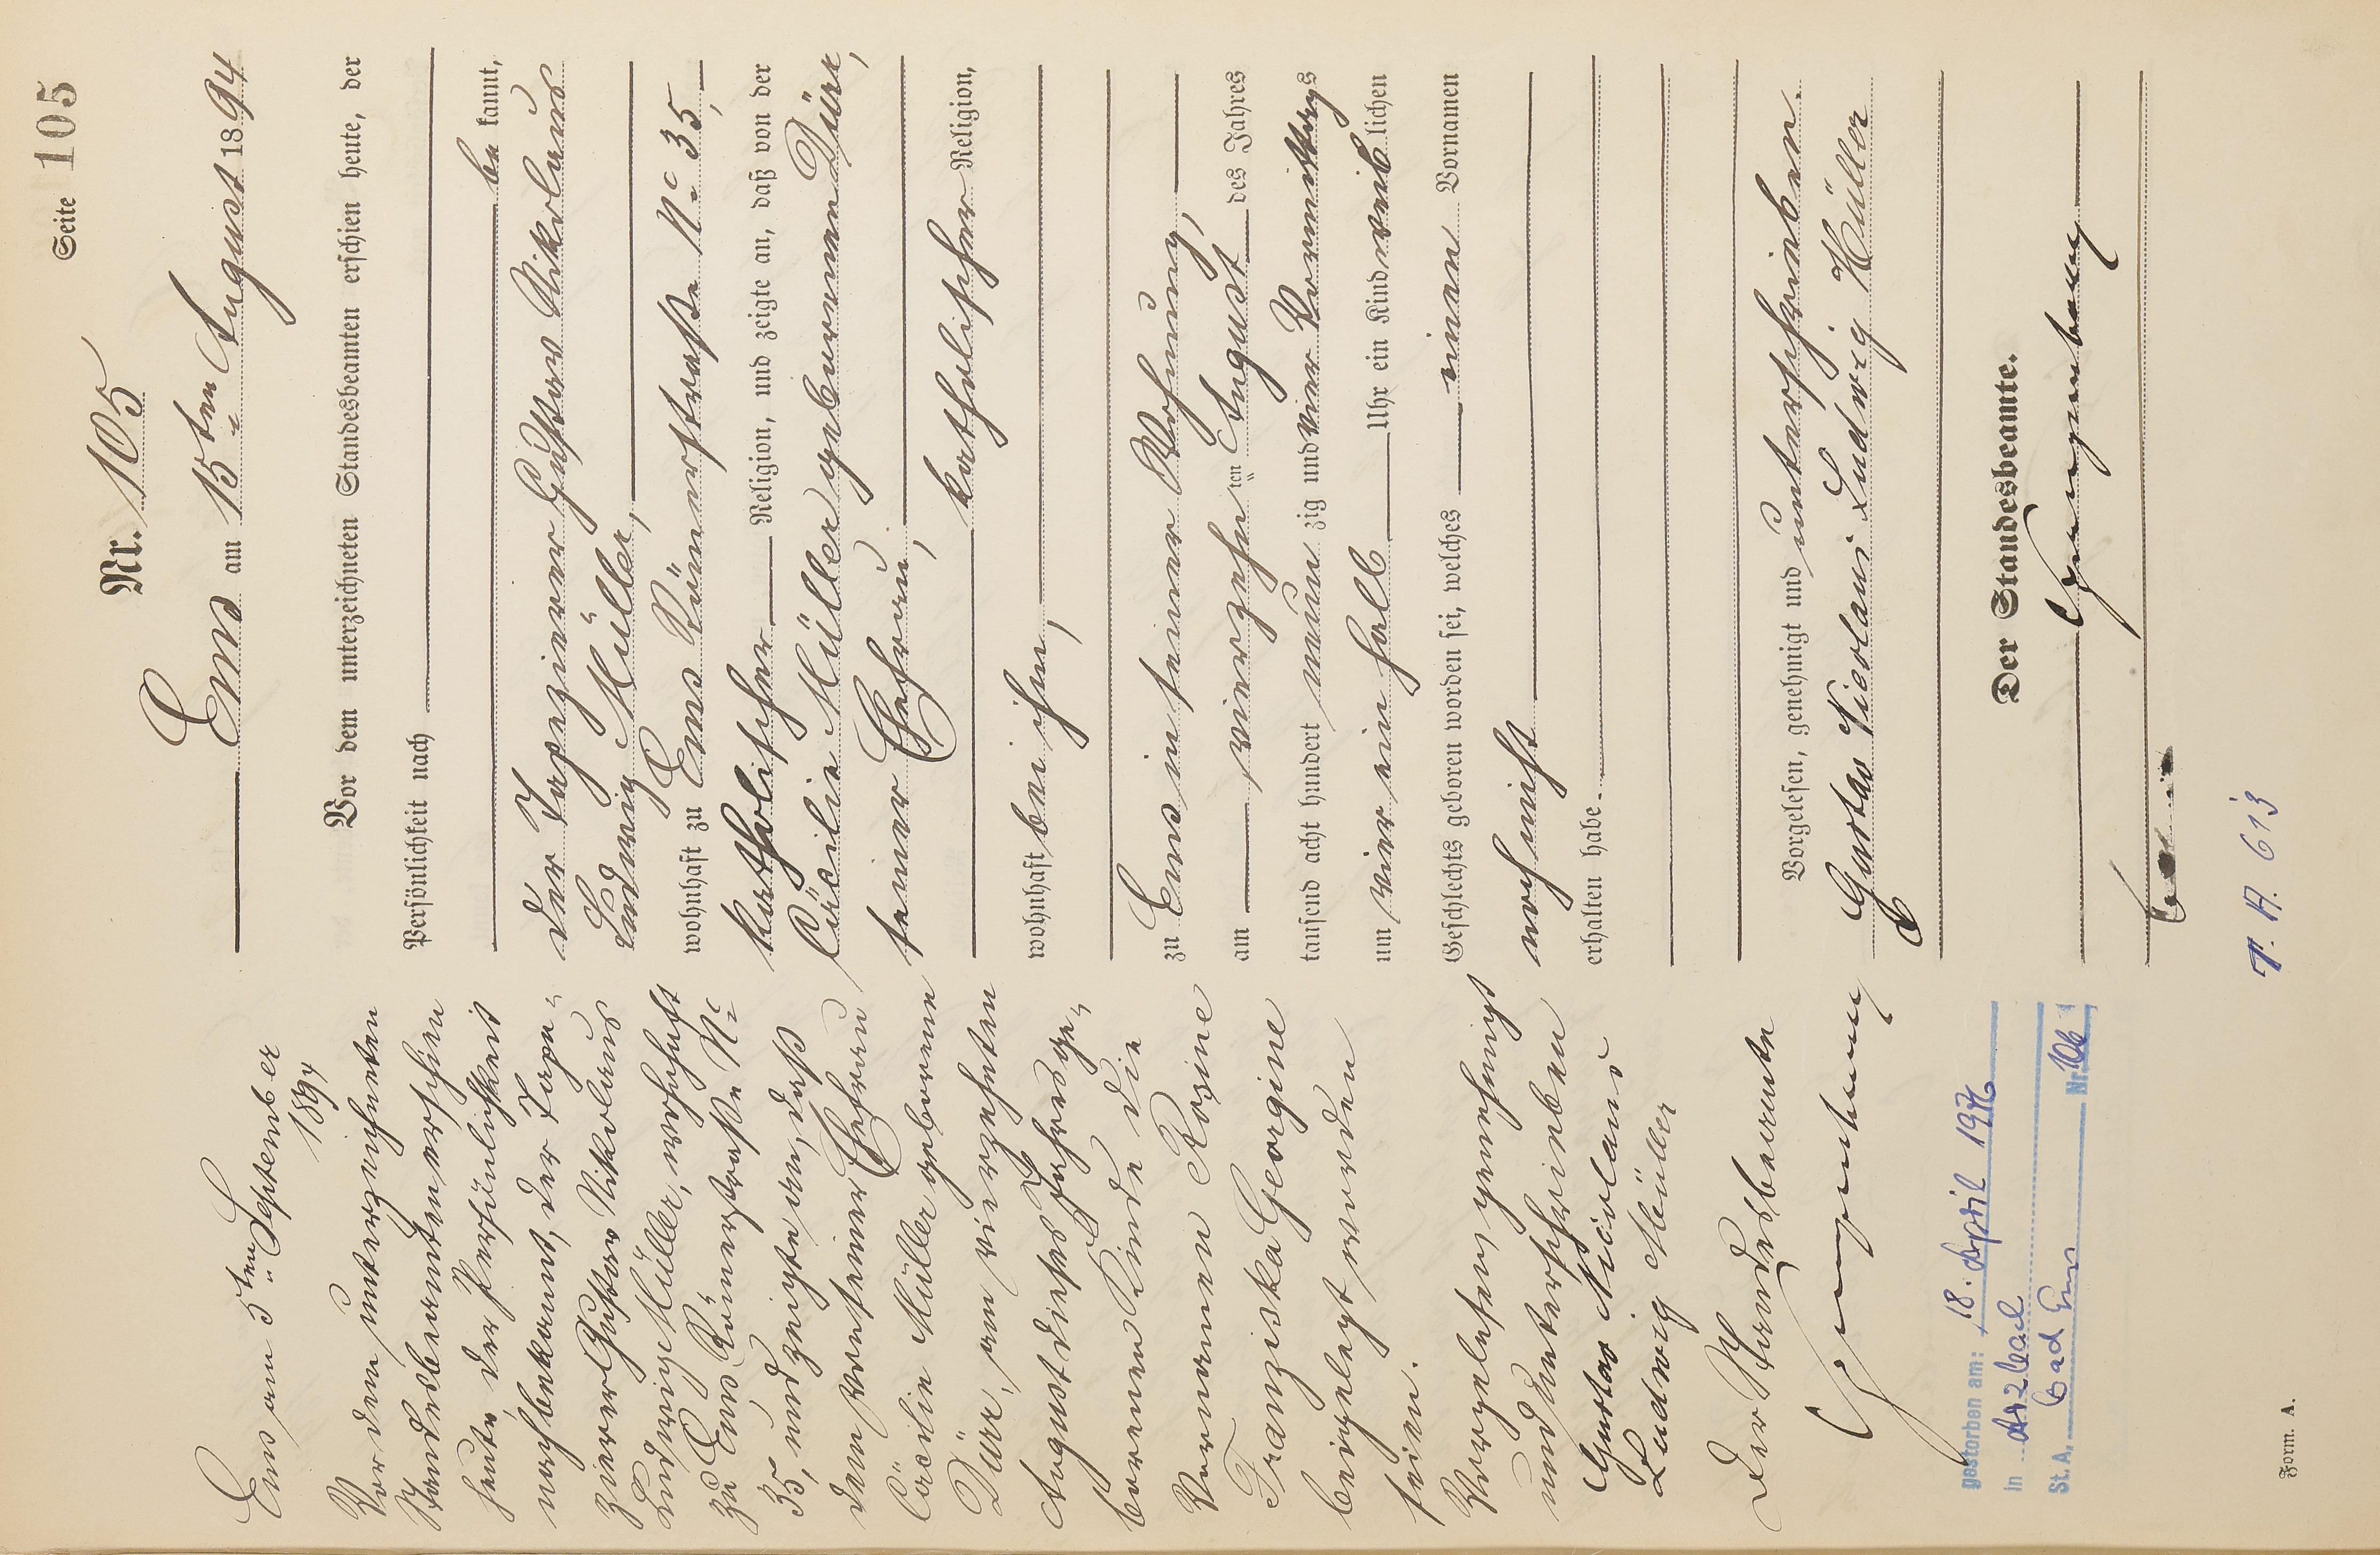 Seite 105
Nr. 105
Ems am 15ten August 1894
Vor dem unterzeichneten Standesbeamten erschien heute, der
Persönlichkeit nach
be kannt,
der Tapezierer Gustav Nikolaus
Ludwig Müller,
wohnhaft zu Ems Römerstraße No 35,
katholischer Religion, und zeigte an, daß von der
Cäcilie Müller geborenen Dürr,
seiner Ehefrau,
katholischer Religion,
wohnhaft bei ihm,
zu Ems in seiner Wohnung,
am vierzehn ten August des Jahres
tausend acht hundert neun zig und vier Vormittags
um vier ein halb Uhr ein Kind weib lichen
Geschlechts geboren worden sei, welches einen Vornamen
noch nicht
erhalten habe.
Vorgelesen, genehmigt und unterschrieben.
Gustav Nicolaus Ludwig Müller
Der Standesbeamte.
Ems am 5ten September
1894
Vor dem unterzeichneten
Standesbeamten erschien
heute, der Persönlichkeit
nach bekannt, der Tape-
zierer Gustav Nikolaus
Ludwig Müller, wohnhaft
zu Ems Römerstraße No
35, und zeigte an, daß
dem von seiner Ehefrau
Cäcilie Müller geborene
Dürr, am vierzehnten
August dieses Jahres ge-
borenen Kinde die
Vornamen Rosine
Franziska Georgine
beigelegt worden
seien.
Vorgelesen, genehmigt
und unterschrieben
Gustav Nicolaus
Ludwig Müller
Der Standesbeamte
gestorben am: 18. April 1976
in Arzbach
St. A. Bad Ems Nr. 106
T. A. 613
Form. A.